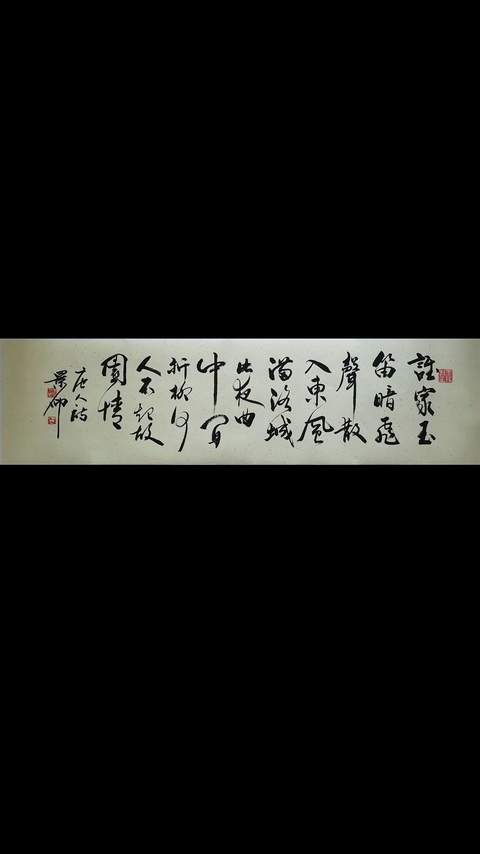 誰家玉
笛暗飛
聲散
入東風
滿洛城
此夜曲
中聞
折柳何
人不起故
園情
唐人詩